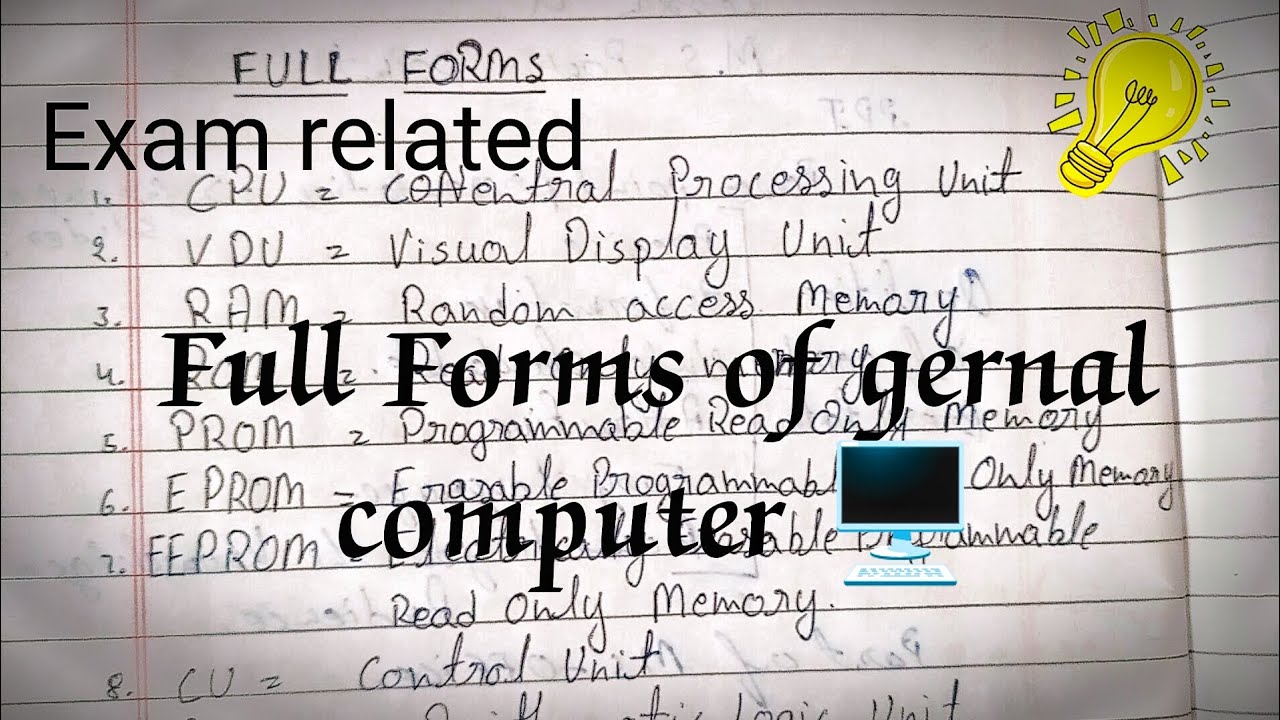 FULL FORMS
Exam related
1. CPU = Central Processing Unit
2. VDU = Visual Display Unit
3. RAM = Random access Memory
Full Forms of gernal
4. = Read only memory
5. PROM = Programmable Read Only Memory
6. EPROM = Erasable Programmable Only Memory
computer
7. EEPROM = Erasable Programmable
Read Only Memory.
8. CU = Control Unit
Logic Unit